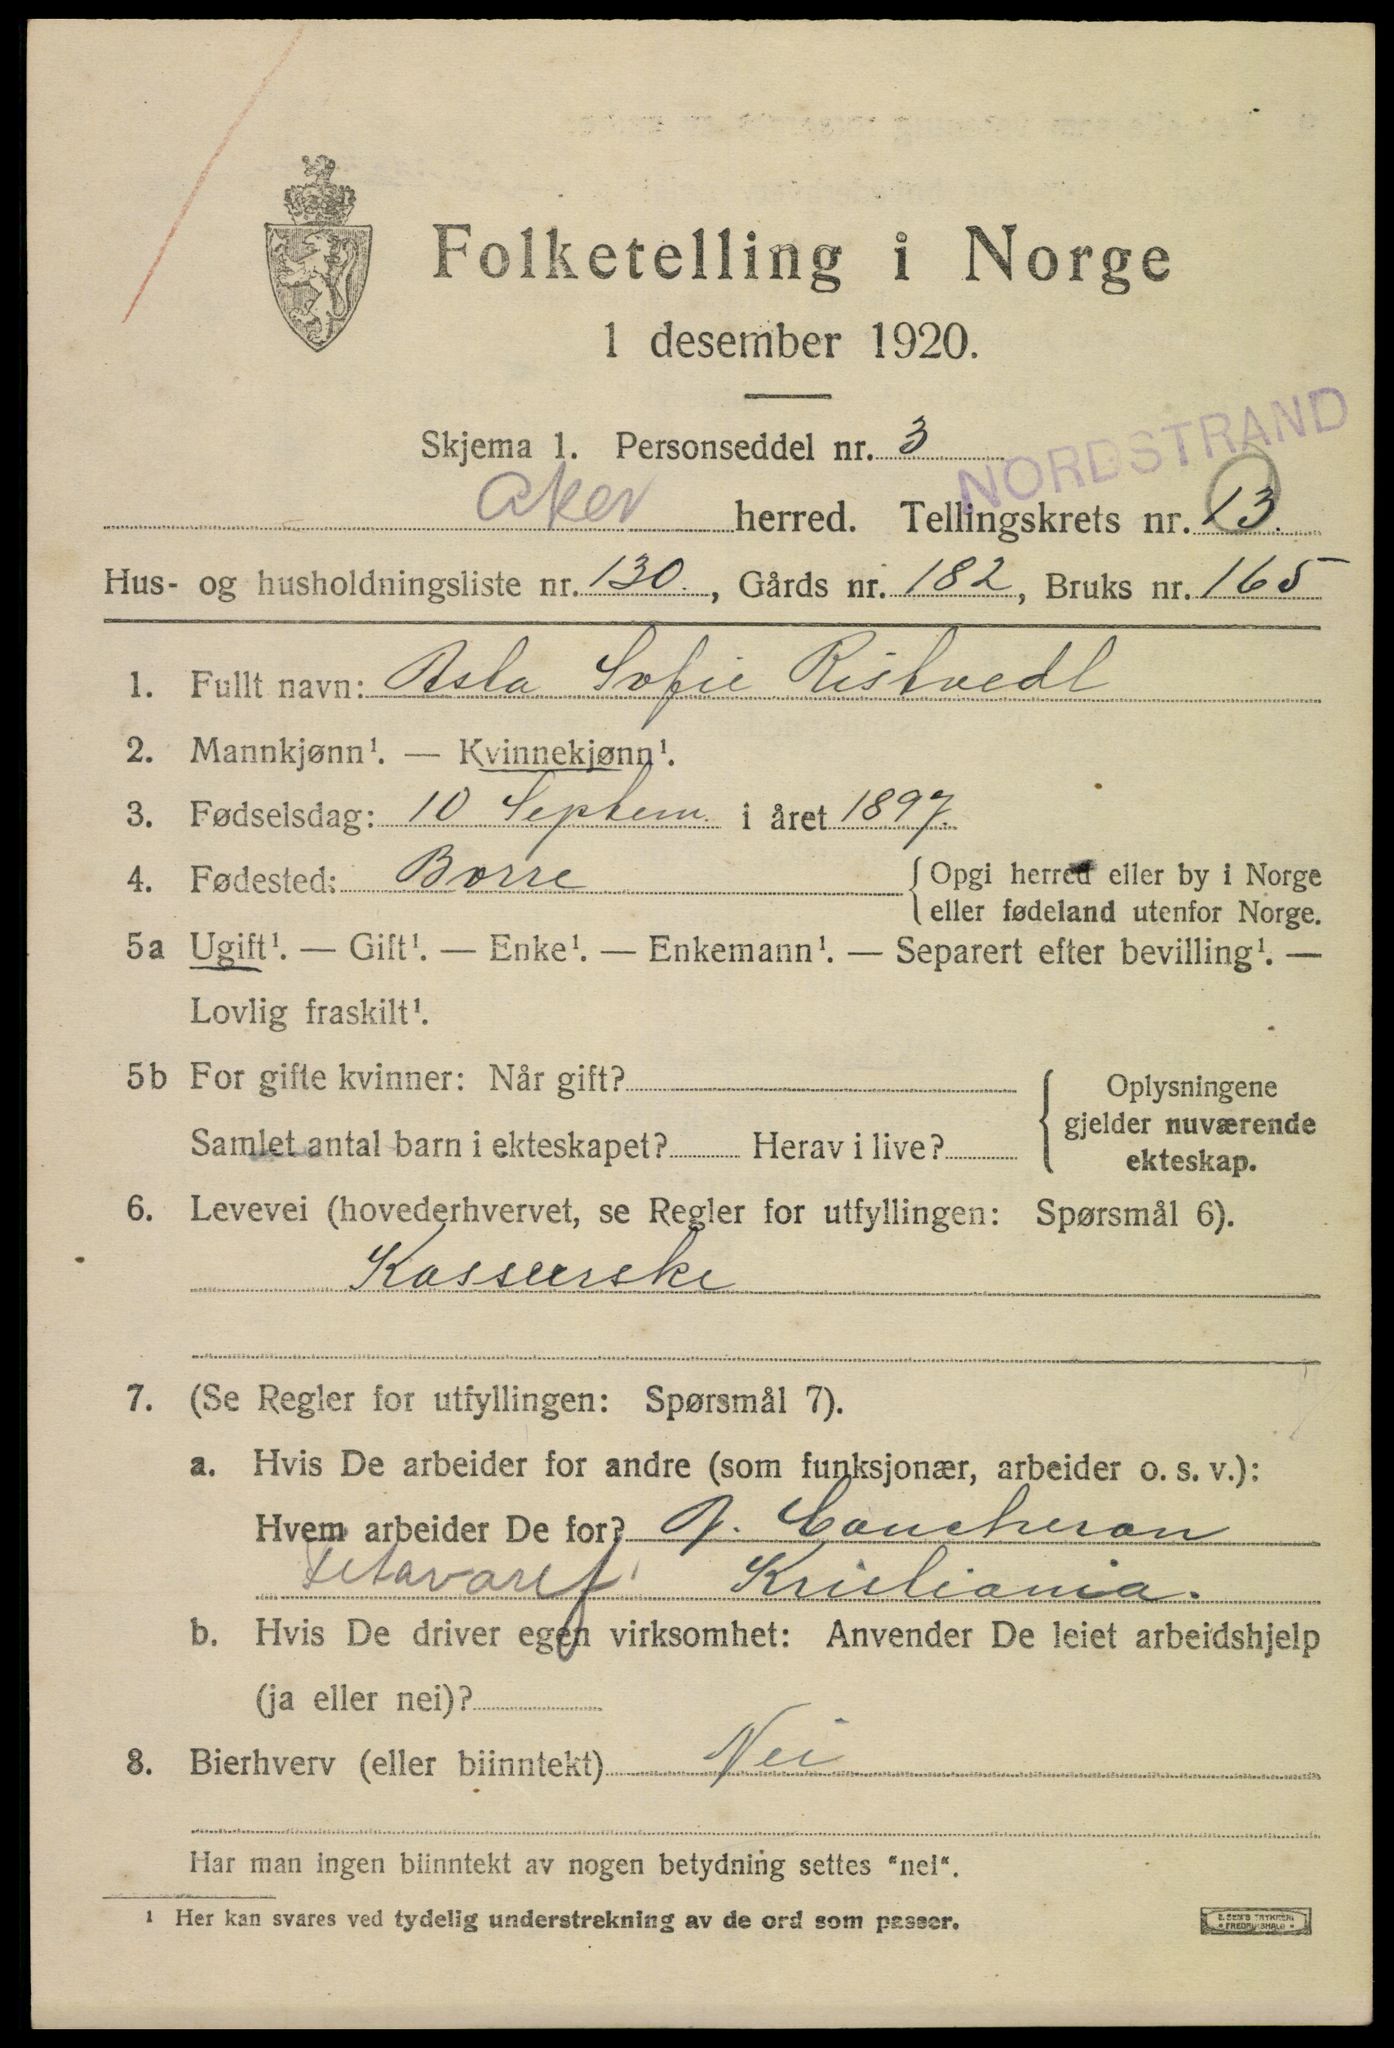 Folketelling i Norge
1 desember 1920.
NORDSTRAND
Skjema 1. Personseddel nr. 3
Aker herred. Tellingskrets nr. 13.
Hus- og husholdningsliste nr. 130., Gårds nr. 182, Bruks nr. 165
1. Fullt navn: Asta Sofie Ristvedt
2. Mannkjønn¹. — Kvinnekjønn¹.
3. Fødselsdag: 10 Septem. i året 1897.
4. Fødested: Borre { Opgi herred eller by i Norge
eller fødeland utenfor Norge.
5a Ugift¹. — Gift¹. — Enke¹. — Enkemann¹. — Separert efter bevilling¹. —
Lovlig fraskilt¹.
5b For gifte kvinner: Når gift?
Samlet antal barn i ekteskapet? Herav i live?
{ Oplysningene
gjelder nuværende
ekteskap.
6. Levevei (hovederhvervet, se Regler for utfyllingen: Spørsmål 6).
Kasserske
7. (Se Regler for utfyllingen: Spørsmål 7).
a. Hvis De arbeider for andre (som funksjonær, arbeider o. s. v.):
Hvem arbeider De for? Coucheron
Kristiania.
b. Hvis De driver egen virksomhet: Anvender De leiet arbeidshjelp
(ja eller nei)?
8. Bierhverv (eller biinntekt) Nei
Har man ingen biinntekt av nogen betydning settes "nei".
¹ Her kan svares ved tydelig understrekning av de ord som passer.
E. SEM'S TRYKKERI
• FREDRIKSHALD •